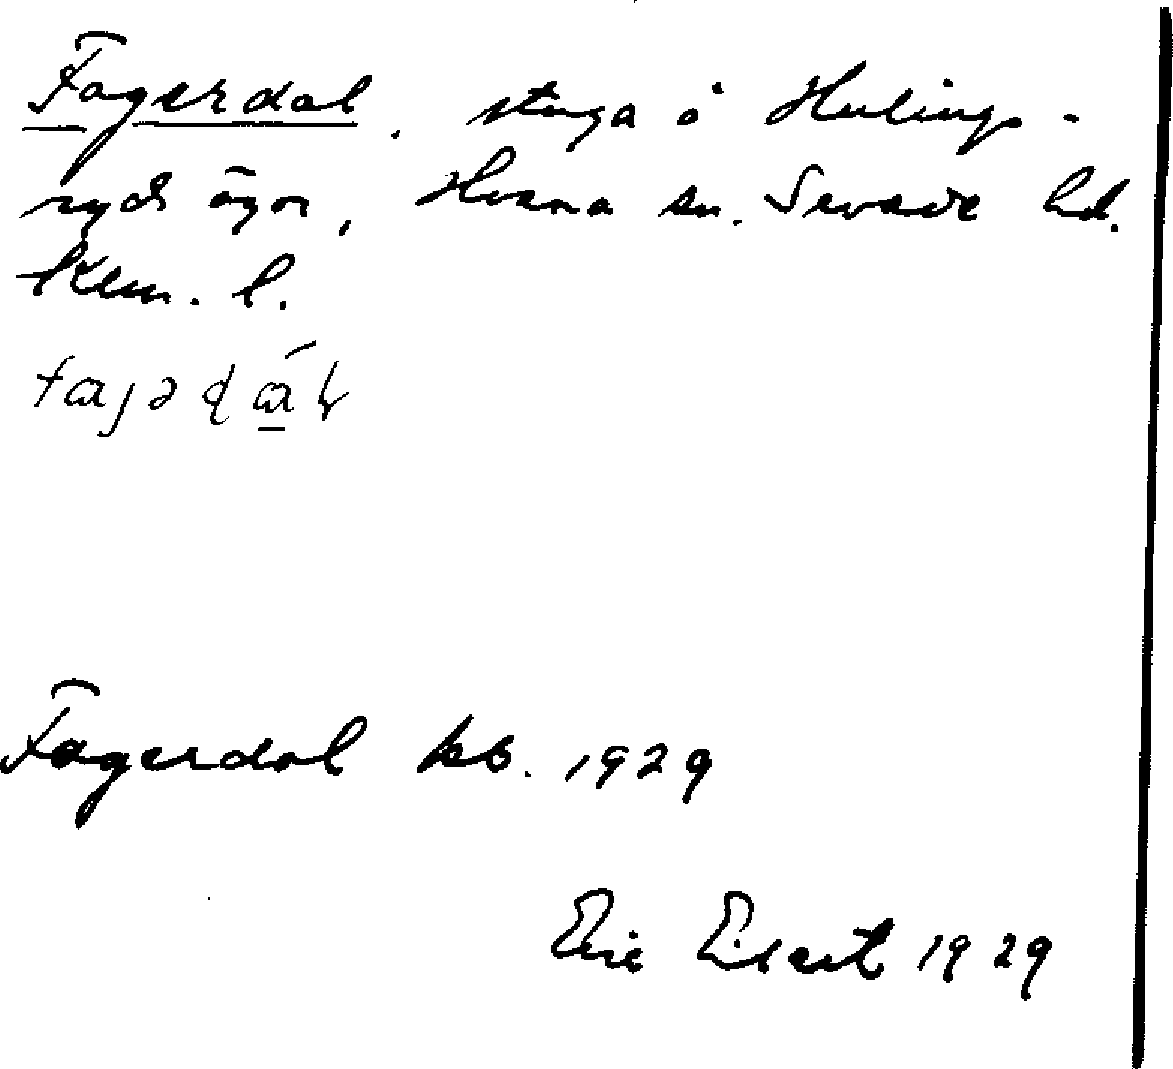 Fagerdal, stuga å Hulings-
ryds ägor, Hvena sn. Sevede hd.
Klm. l.
Fagerdal kb. 1929
Eric Elsert 1929